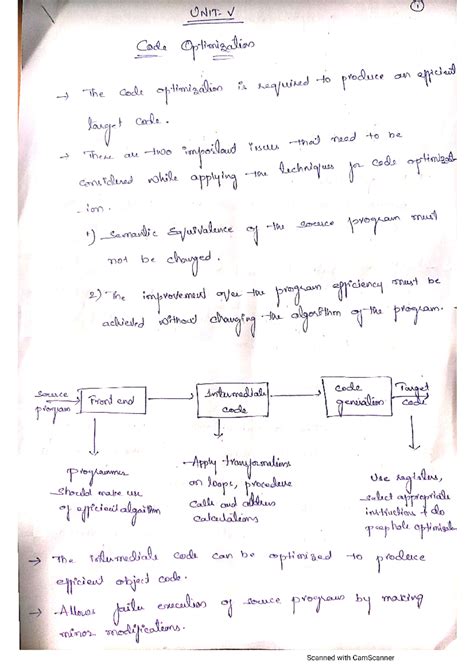 UNIT-V
1
Code Optimization
→ The code optimization is required to produce an efficient
target code.
→ There are two important issues that need to be
considered while applying the techniques for code optimizat
-ion.
1) Semantic Equivalence of the source program must
not be changed.
2) The improvement over the program efficiency must be
achieved without changing the algorithm of the program.
Source program
Front end
Intermediate code
code generation
Target code
programmer
should make use
of efficient algorithm
Apply transformations
on loops, procedure
calls and address
calculations
Use registers,
select appropriate
instructions + do
peephole optimizati
→ The intermediate code can be optimized to produce
efficient object code.
→ Allows faster execution of source program by making
minor modifications.
Scanned with CamScanner